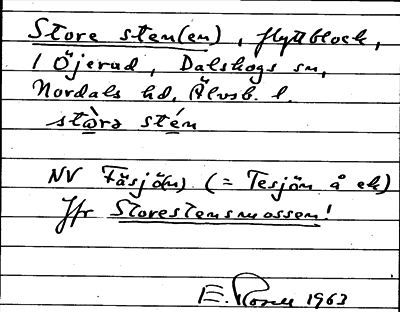 Store sten(en), flyttblock,
i Öjerud, Dalskogs sn,
Nordals hd, Älvsb. l.
stòrə stén
NV Täsjö(n) (= Tesjön å ek)
Jfr Storestensmossen!
E. Rosell 1963